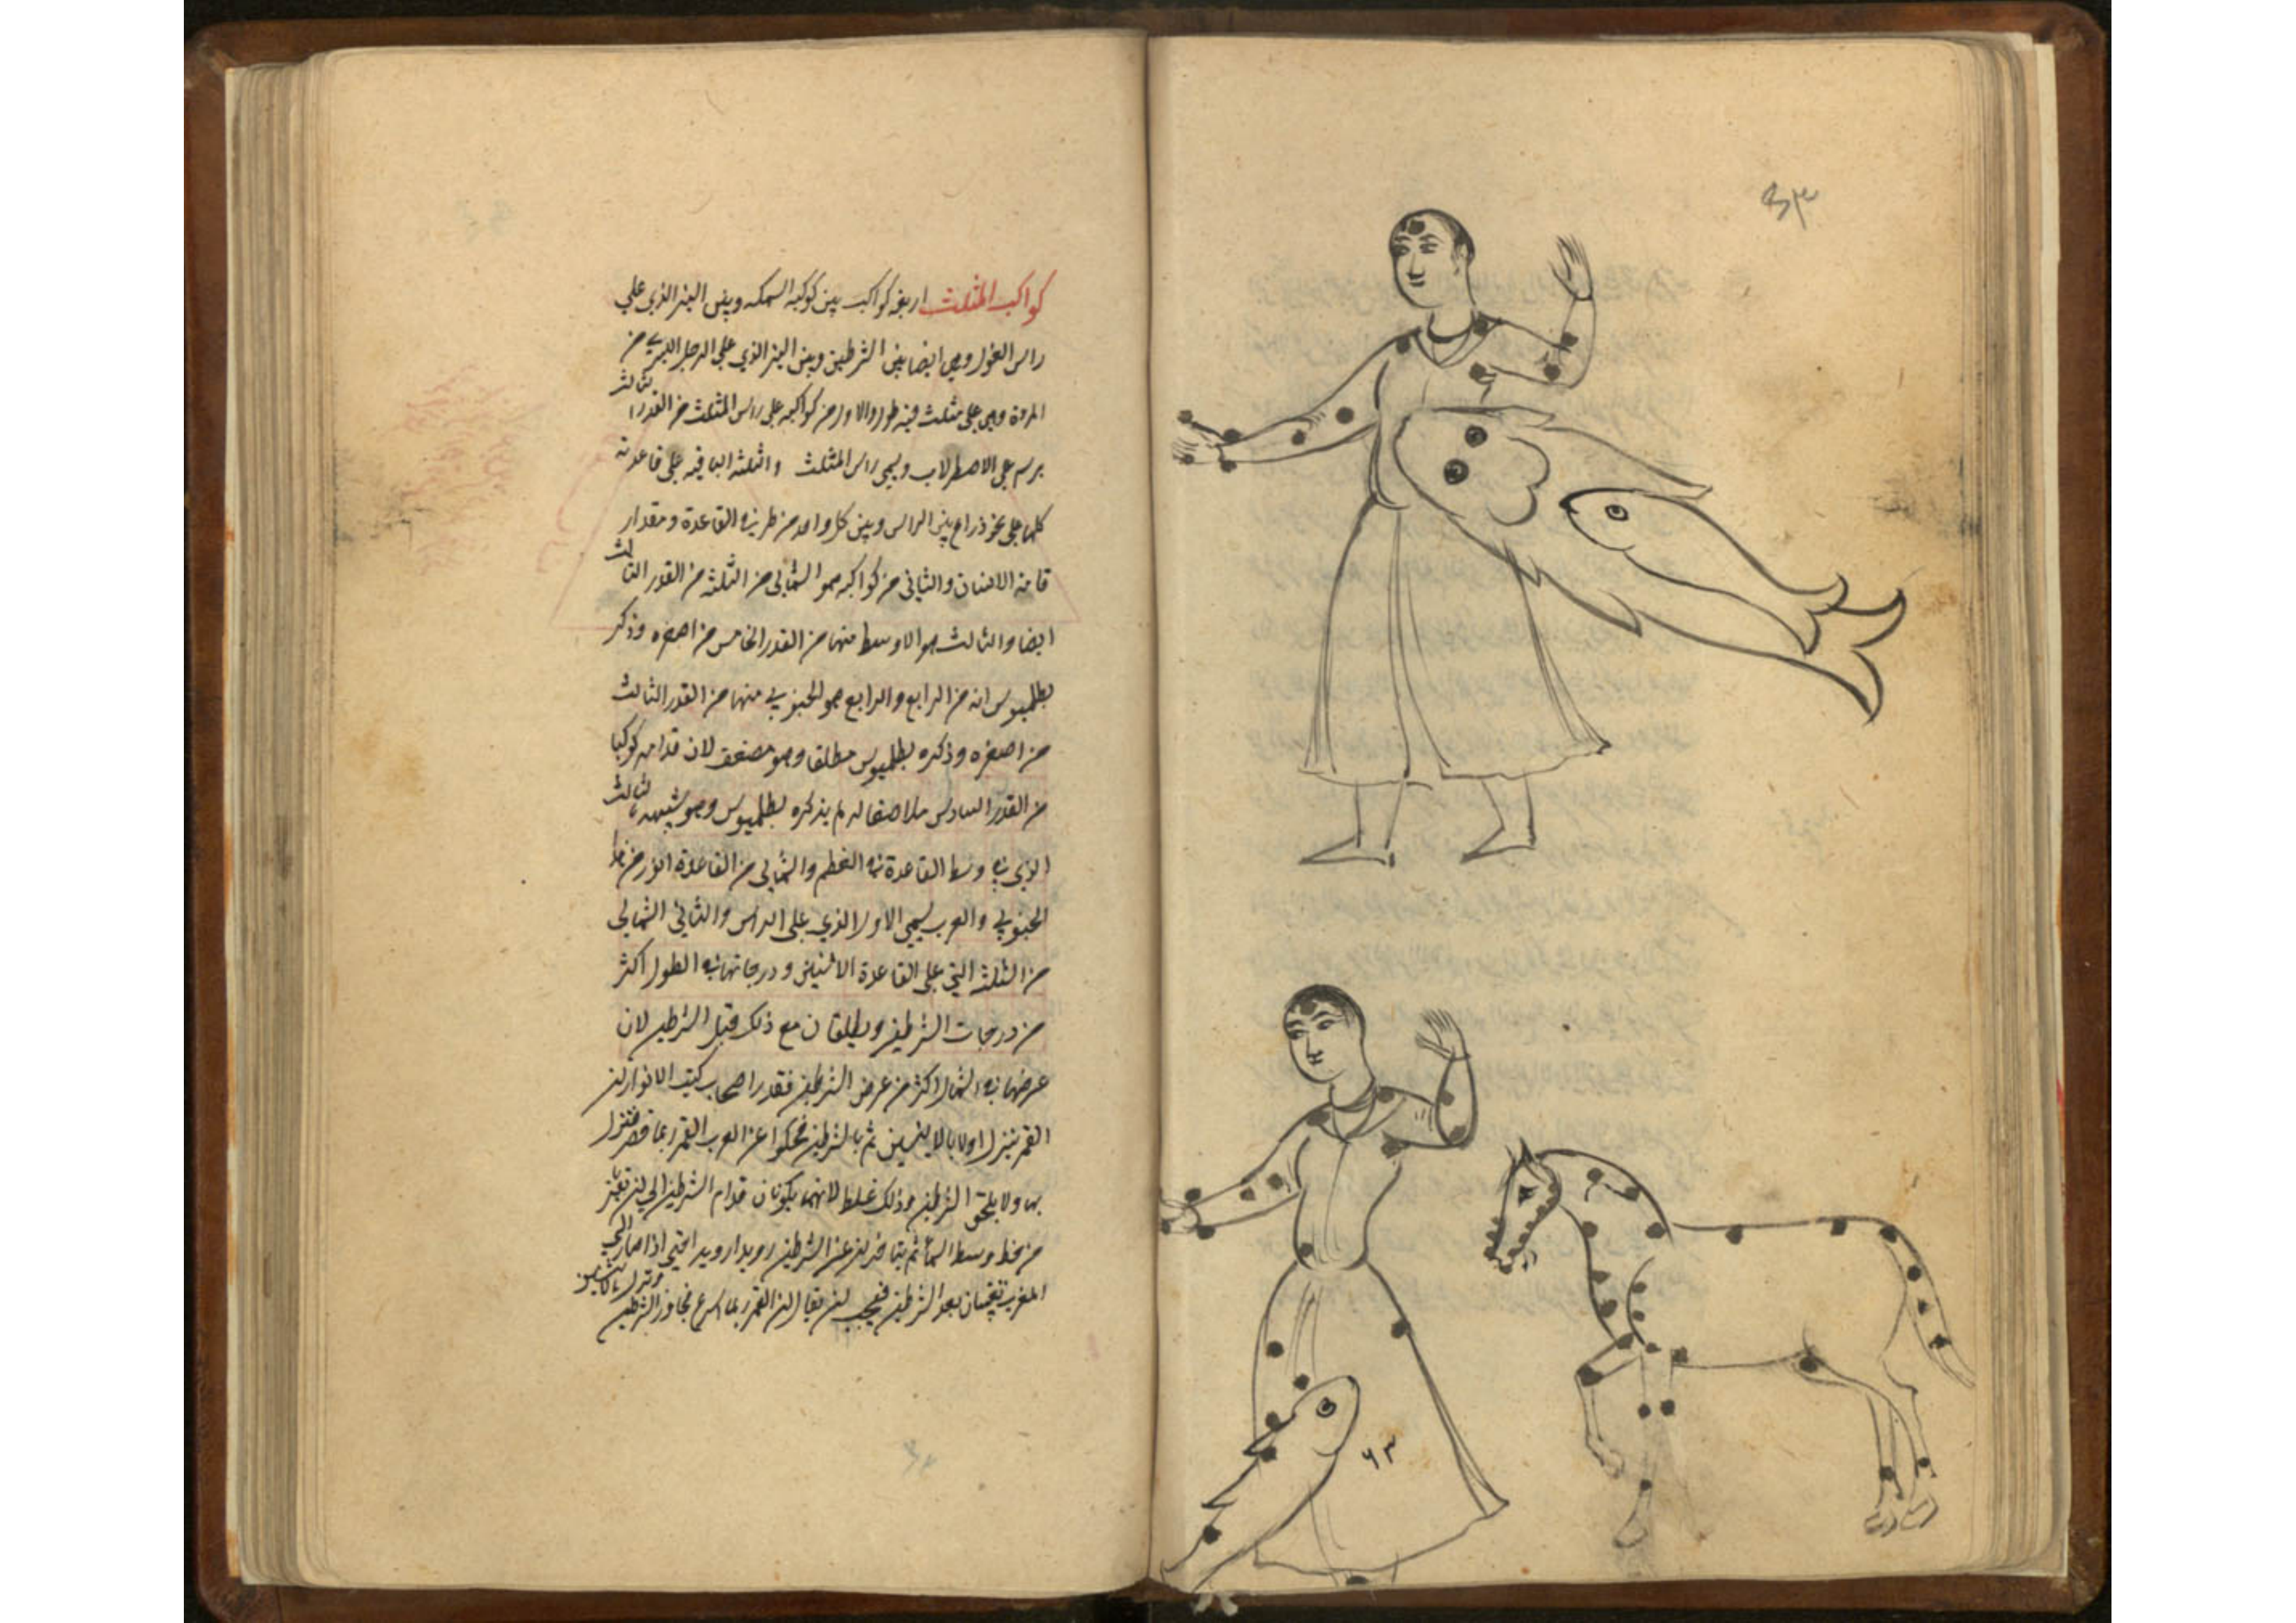 ٤٣
٤٣
كواكب المثلث اربعة كواكب بين كوكبة السمكة وبين النير الذي علي
راس الغول وهي ايضا بين الشرطين وبين النير الذي علي الرجل اليسري من
المراة وهي علي مثلث فيه طول والاول من كواكبه علي راس المثلث من القدر الثالث
يرسم علي الاصطرلاب ويسمي راس المثلث والثلثة الباقية علي قاعدته
كلها علي نحو ذراع بين الراس وبين كل واحد من طرفي القاعدة مقدار
قامة الانسان والثاني من كواكبه هو الشمالي من الثلثة من القدر الثالث
ايضا والثالث هو الاوسط منها من القدر الخامس من اصغره وذكر
بطلميوس انه من الرابع والرابع هو الجنوبي منها من القدر الثالث
من اصغره وذكره بطلميوس مطلقا وهو مضعف لان قدامه كوكبا
من القدر السادس ملاصقا له لم يذكره بطلميوس وهو شبيه بالثالث
الذي في وسط القاعدة في العظم والشمالي من القاعدة انور من
الجنوبي والعرب يسمي الاول الذي علي الراس والثاني الشمالي
من الثلثة التي علي القاعدة الانيسين ودرجاتهما في الطول اكثر
من درجات الشرطين ويطلعان مع ذلك قبل الشرطين لان
عرضهما في الشمال اكثر من عرض الشرطين فقدر اصحاب كتب الانوار ان
القمر ينزل اولا بالانيسين ثم بالشرطين فحكوا عن العرب ان القمر ربما قصر فنزل
بها ولا يلحق الشرطين وذلك غلط لانهما يكونان قدام الشرطين الي ان تقرب
من خط وسط السماء ثم يتاخران عن الشرطين رويدا رويدا حتي اذا صار الي
المغرب تغيبان بعد الشرطين فيجب ان يقال ان القمر ربما اسرع فجاوز الشرطين
ونزل بالانيسين